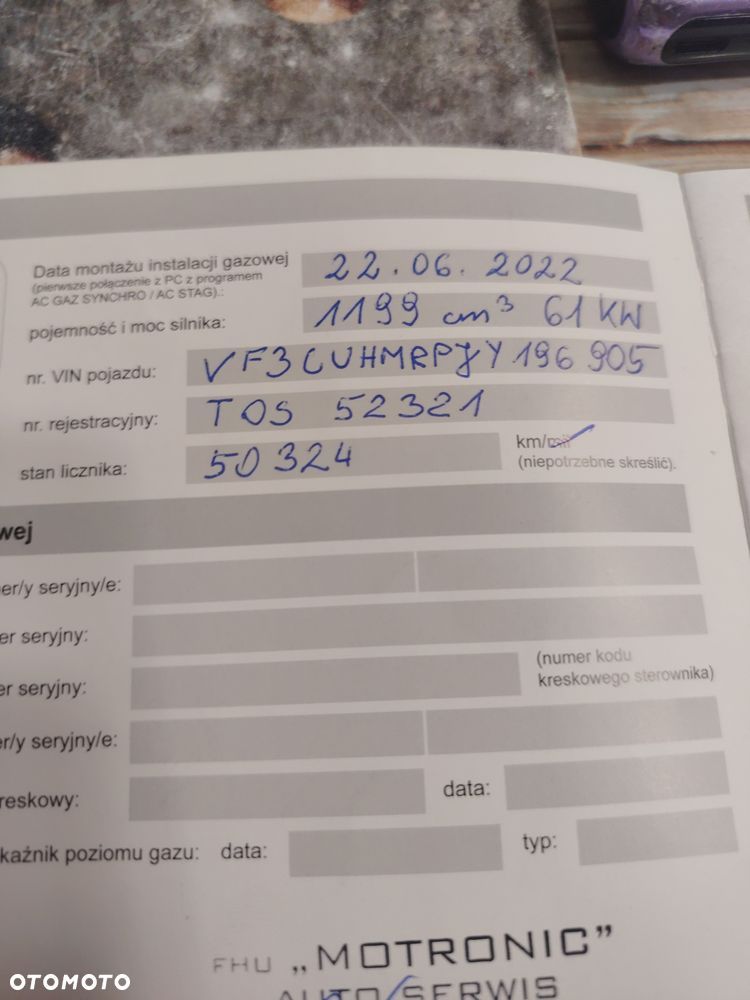 Data montażu instalacji gazowej 22.06.2022
(pierwsze połączenie z PC z programem
AC GAZ SYNCHRO / AC STAG).:
pojemność i moc silnika: 1199 cm³ 61 KW
nr. VIN pojazdu: VF3CUHMRPJY196905
nr. rejestracyjny: TOS 52321
stan licznika: 50324 km/mil
(niepotrzebne skreślić).
wej
er/y seryjny/e:
er seryjny:
er seryjny: (numer kodu
kreskowego sterownika)
er/y seryjny/e:
reskowy: data:
kaźnik poziomu gazu: data: typ:
FHU „MOTRONIC”
AUTO SERWIS
OTOMOTO